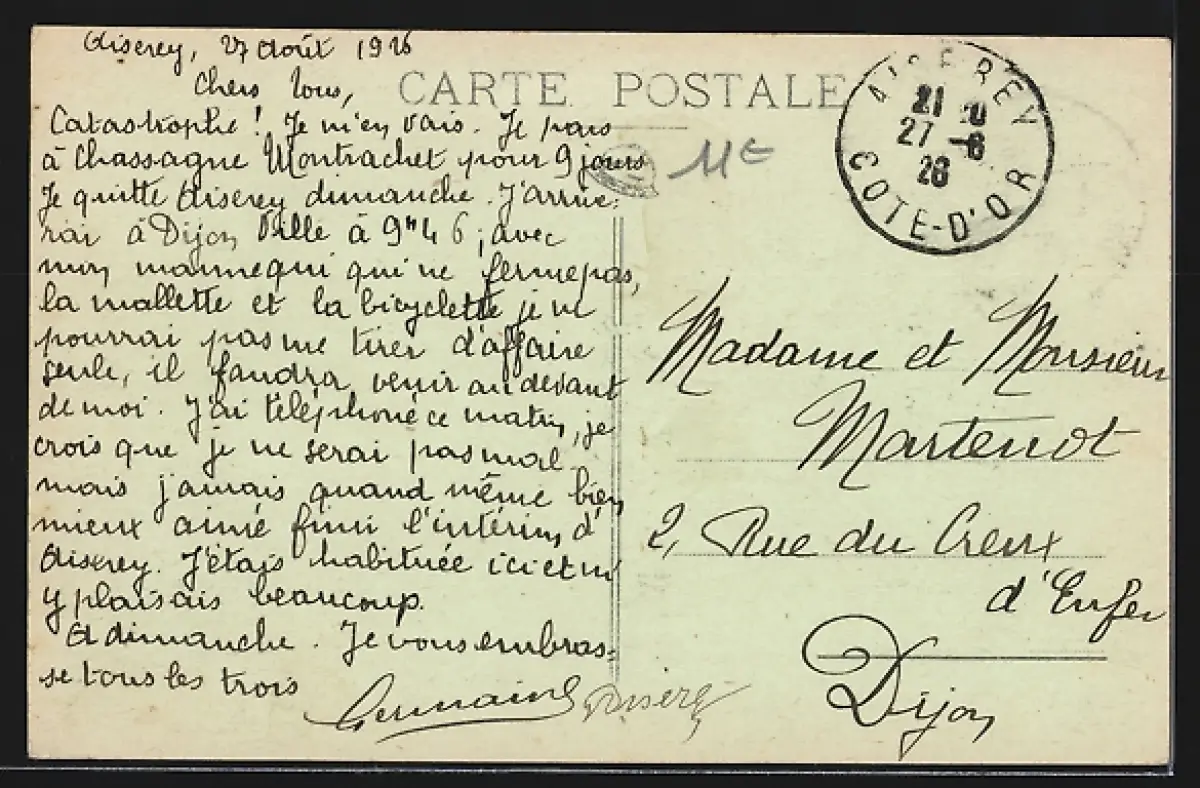 Aiserey, 27 Août 1926
Chers Tous,
CARTE POSTALE
Catastrophe ! Je m'en vais. Je pars
à Chassagne Montrachet pour 9 jours
Je quitte Aiserey dimanche. J'arrive-
rai à Dijon Ville à 9h46 ; avec
mon mannequi qui ne ferme pas,
la mallette et la bicyclette je ne
pourrai pas me tirer d'affaire
seule, il faudra venir au devant
de moi. J'ai téléphoné ce matin, je
crois que je ne serai pas mal
mais jamais quand même bien
mieux aimé finir l'intérim d'
Aiserey. J'étais habituée ici et m'
y plaisais beaucoup.
A dimanche. Je vous embras-
se tous les trois
Germaine
Aiserey
11€
AISEREY
21 20
27 -8
26
COTE-D'OR
Madame et Monsieur
Martenot
2, Rue du Creux
d'Enfer
Dijon